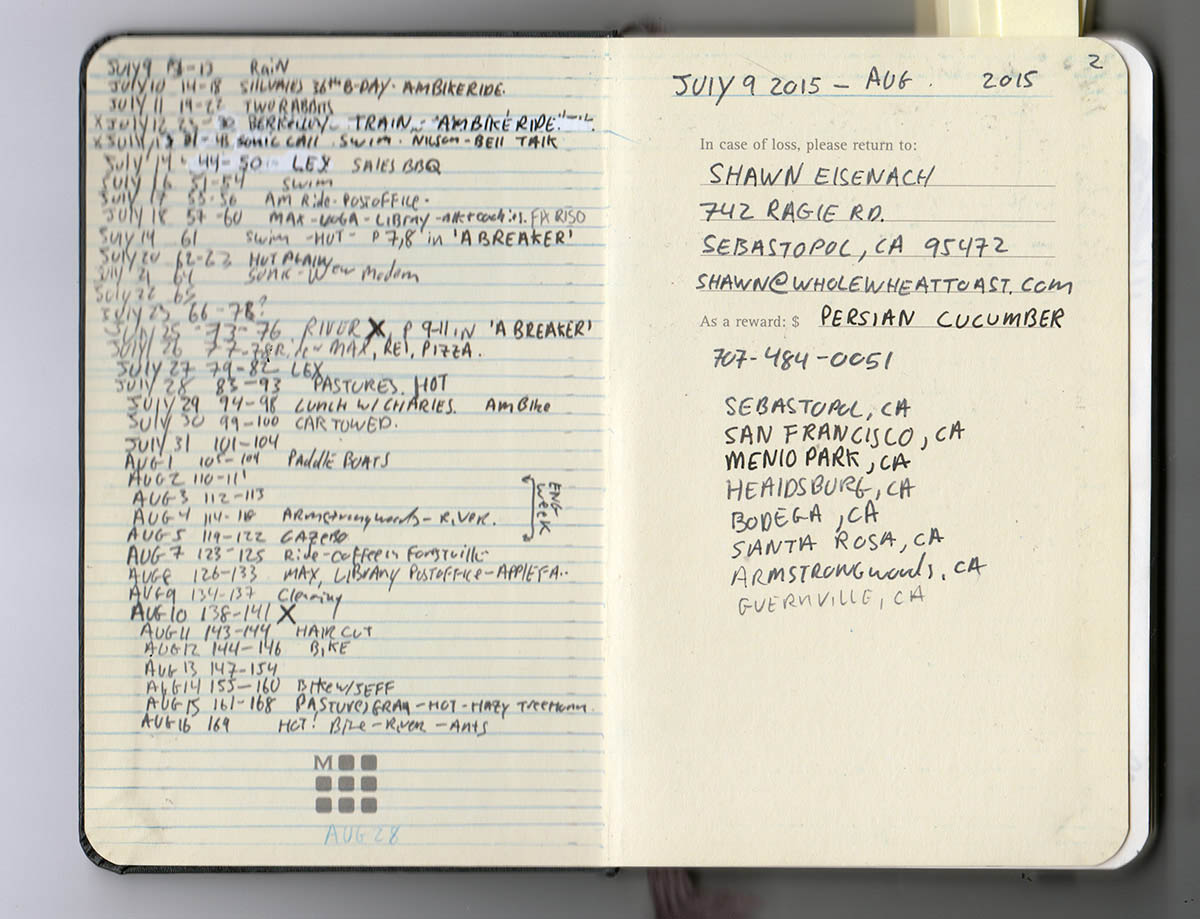 JULY 9 P3-13 RAIN
JULY 10 14-18 36TH B-DAY. AM BIKERIDE.
JULY 11 19-22 TWO RABBITS
X JULY 12 23- 30 BERKELEY - TRAIN - "AM BIKE RIDE."
X JULY 13 31-43 SONIC CALL. SWIM. NILSON-BELL TALK
JULY 14 44-50- LEX SALES BBQ
JULY 16 51-54 SWIM
JULY 17 55-56 AM Ride-POSTOFFICE-
JULY 18 57-60 MAX-YOGA-LIBRARY-
JULY 19 61 SWIM-HOT- P 7,8 in 'A BREAKER'
JULY 20 62-63 HOT PLAIN
JULY 21 64 SONIC- New Modem
JULY 22 65
JULY 23 66-78?
JULY 25 -73-76 RIVER X, P 9-11 IN 'A BREAKER'
JULY 26 77-78 MAX, REI, PIZZA.
JULY 27 79-82 LEX
JULY 28 83-93 PASTURES. HOT
JULY 29 94-98 LUNCH W/ CHARLES. AM Bike
JULY 30 99-100 CAR TOWED.
JULY 31 101-104
AUG 1 105-109 PADDLE BOATS
AUG 2 110-111
AUG 3 112-113
AUG 4 114-118 ARMSTRONG WOODS-RIVER.
AUG 5 119-122 GAZEBO
ENG WEEK
AUG 7 123-125 Ride-coffee in Forestville
AUG 8 126-133 MAX, LIBRARY POSTOFFICE-
AUG 9 134-137 Cleaning
AUG 10 138-141 X
AUG 11 143-144 HAIR CUT
AUG 12 144-146 BIKE
AUG 13 147-154
AUG 14 155-160 BIKE W/ JEFF
AUG 15 161-168 -HOT-HAZY
AUG 16 169 HOT! BIKE-RIVER-ANTS
M
AUG 28
2
JULY 9 2015 - AUG. 2015
In case of loss, please return to:
SHAWN EISENACH
742 RAGLE RD.
SEBASTOPOL, CA 95472
SHAWN@WHOLEWHEATTOAST.COM
As a reward: $ PERSIAN CUCUMBER
707-484-0051
SEBASTOPOL, CA
SAN FRANCISCO, CA
MENLO PARK, CA
HEALDSBURG, CA
BODEGA, CA
SANTA ROSA, CA
ARMSTRONG WOODS, CA
GUERNVILLE, CA